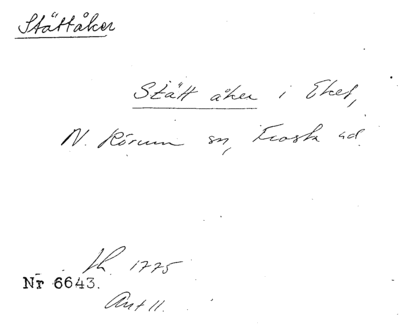 Stättåker
Stätt åker i Eket,
N. Rörum sn, Frosta hd.
Sk. 1775
Nr 6643.
Ant 11.